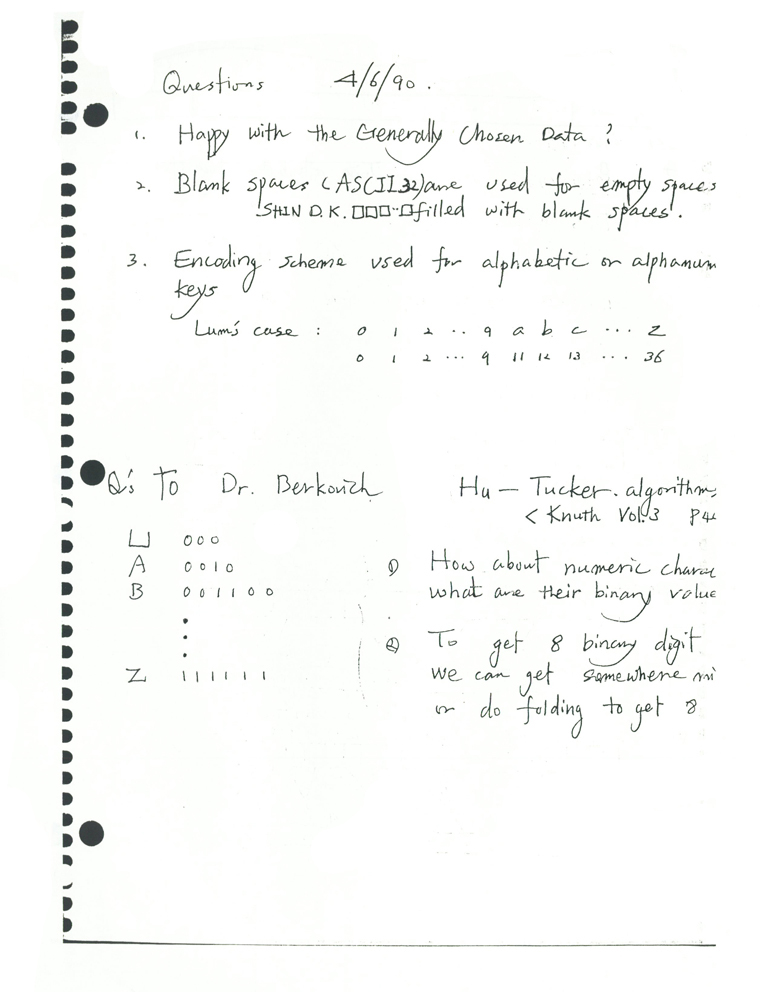 Questions 4/6/90.
1. Happy with the Generally Chosen Data ?
2. Blank spaces (ASCII 32) are used for empty spaces
SHIN D.K. □□□··□ filled with blank spaces.
3. Encoding scheme used for alphabetic or alphanum
keys
Lum's case : 0 1 2 ·· 9 a b c ··· z
0 1 2 ··· 9 11 12 13 ··· 36
Q's To Dr. Berkovich
Hu – Tucker. algorithm
< Knuth Vol.3 P4
⊔ 000
A 0010
B 001100
Z 111111
① How about numeric charac
what are their binary value
② To get 8 binary digit
we can get somewhere mi
or do folding to get 8